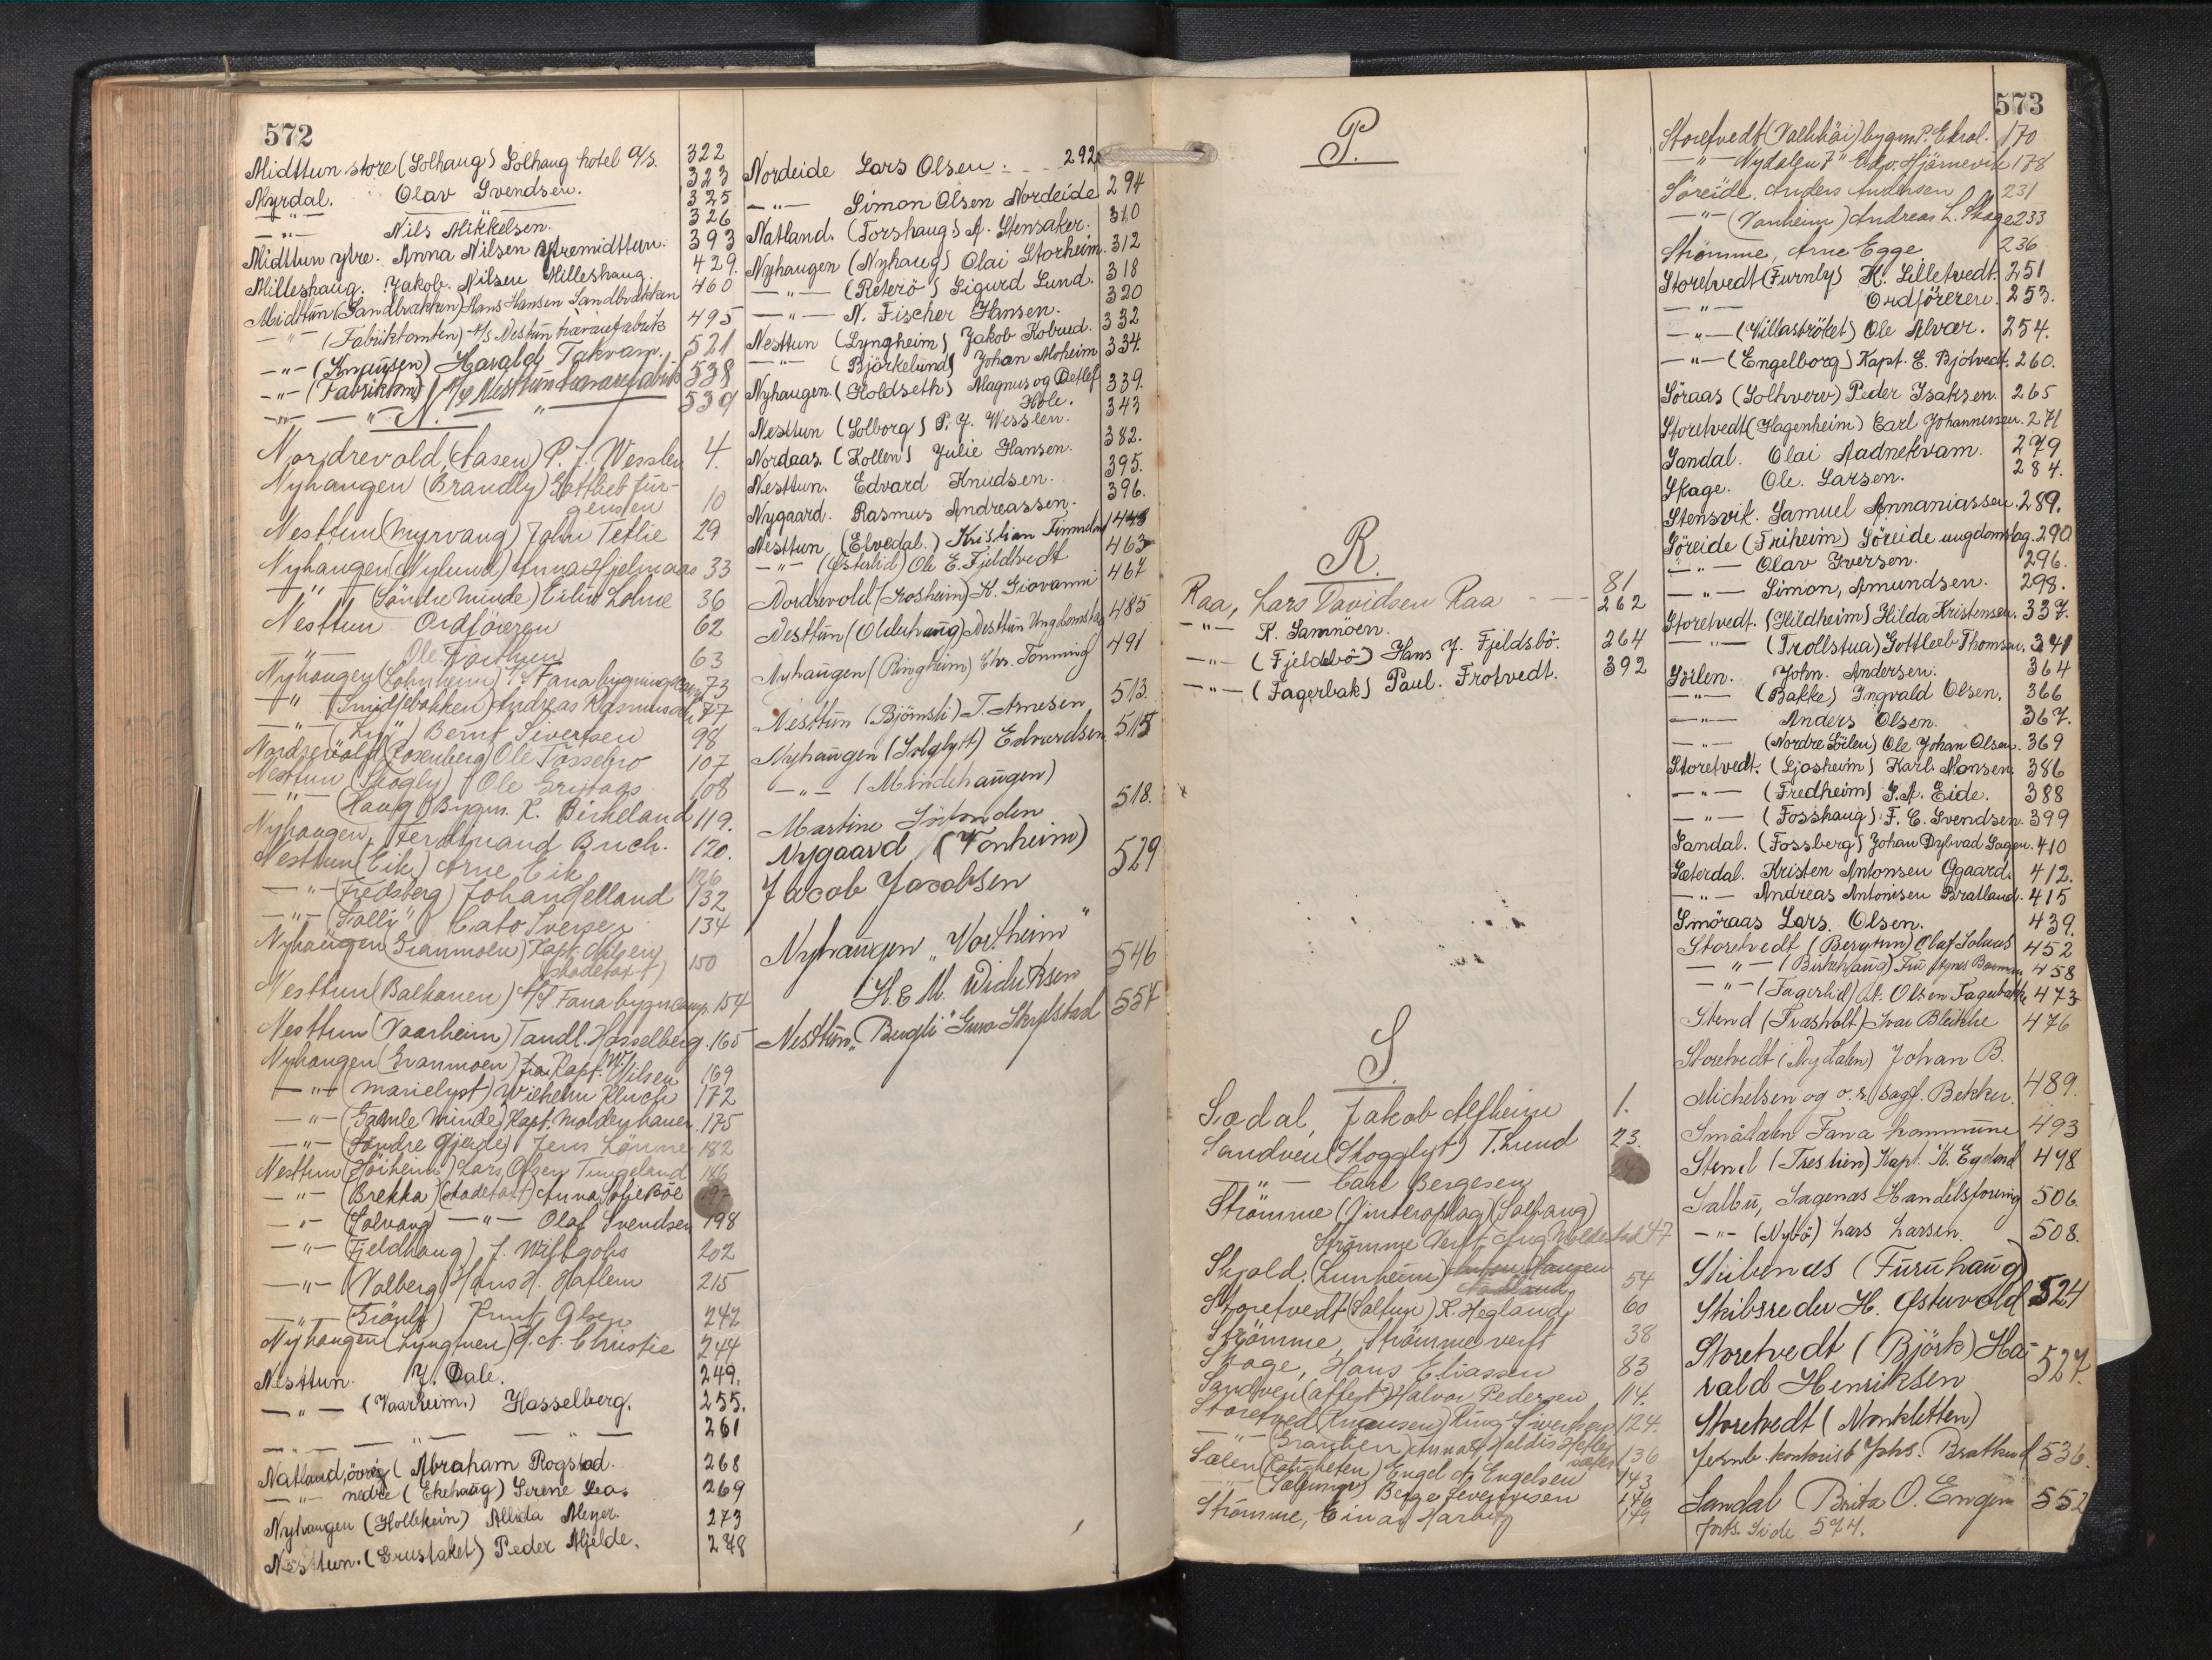 572
Midttun store (Solhaug) Solhaug hotel a/s. 322
Myrdal. Olav Svendsen. 323
—"— 325
—"— Nils Mikkelsen. 326
Midttun ytre. Anna Nilsen Ytremidttun. 393
Milleshaug. Jakob Nilsen Milleshaug. 429.
Midttun (Sandbrakken) Hans Hansen Sandbrakken 460
—"— (Fabriktomten) A/S Nesttun trævarefabrik 495
—"— (Knausen) Harald Takvam. 521
—"— (Fabriktom) A/S Nesttun trævarefabrik 538
—"— " — " — 539
N.
Nordrevold, (Aasen) P. J. Wesslen 4.
Nyhaugen (Brandly) Gottlieb Jür-
gensen 10
Nesttun (Myrvang) John Tetlie 29
Nyhaugen (Nylund) Anna Hjelmaas 33
—"— (Söndre Minde) Eilert Lohne 36
Nesttun Ordföreren 62
—"— Ole 63
Nyhaugen (Solnheim) A/S Fana bygningskomp. 73
—"— (Smidjebakken) Andreas Rasmussen 77
—"— (Ly) Bernt Sivertsen 98
Nordrevold (Rosenberg) Ole Fossebro 107
Nesttun (Skogly) Ole Grytaas 108
—"— (Haug) Bygm. K. Birkeland 119.
Nyhaugen, Ferdinand Buch. 120.
Nesttun (Eik) Arne Eik 126
—"— (Fredsberg) Johan Helland 132
—"— (Solli) Cato Iversen 134
Nyhaugen (Granmoen) Kapt. Nilsen
(skadetaxt) 150
Nesttun (Balkanen) A/S Fana bygn.comp. 154
Nesttun (Vaarheim) Tandl. Hasselberg. 165
Nyhaugen (Granmoen) fra Kapt. W. Nilsen 169
—"— (Marielyst) Wilhelm Kluck 172
—"— (Gamle Minde) Kapt. Moldenhauer. 175
—"— (Söndre Gjerde) Jens Lönne 182
Nesttun (Höiheim) Lars Olsen Tungeland 186
—"— (Brekka) (skadetaxt) Anna Soljebøe 197
—"— (Solvang) —"— Olaf Svendsen 198
—"— (Fjeldhaug) J. Wiftgohs 202
—"— (Valberg) Hans H. Haflem 215
—"— (Grönly) Knut Olsen 242
Nyhaugen (Lyngtuen) H. A. Christie 244
Nesttun. J. Dale. 249.
—"— (Vaarheim.) Hasselberg. 255.
—"— — " — " — 261
Natland, övre (Abraham Rogstad. 268
—"— nedre (Ekehaug) Serene Lea. 269
Nyhaugen (Hollekein) Allida Meyer. 273
Nesttun. (Grustaket) Peder Mjelde. 288
Nordeide Lars Olsen. 292
—"— Simon Olsen Nordeide 294
Natland. (Torshaug) A. Stensaker. 310
Nyhaugen (Nyhaug) Olai Storheim. 312
—"— (Reterö) Sigurd Lund. 318
—"— N. Fischer Hansen. 320
Nesttun (Lyngheim) Jakob Kobrud. 332
—"— (Björkelund) Johan Moheim 334.
Nyhaugen. (Holdseth) Magnus og Detlef
Hole. 339.
Nesttun (Solborg) P. J. Wesslen. 343
Nordaas. (Kollen) Julie Hansen. 382.
Nesttun. Edvard Knudsen. 395.
Nygaard. Rasmus Andreassen. 396.
Nesttun (Elvedal.) Kristian Timmeland 448
—"— (Østerlid) Ole E. Fjeldtvedt 463
Nordrevold (Frosheim) K. Giovanni 467
Nesttun (Olduhaug) Nesttun Ungdomslag 485
Nyhaugen (Ringheim) Chr. Tonning 491
Nesttun (Björnsli) T. Arnesen 513.
Nyhaugen (Solglytt) Edvardsen 515
—"— (Mindehaugen)
Martine 518.
Nygaard (Vonheim)
Jacob Jacobsen 529
Nyhaugen „Vortheim"
H. & M. Wideriksen 546
Nesttun „Bugli" Guro Skylstad 557
P.
R.
Raa, Lars Davidsen Raa — — 81
—"— K. Samnöen. 262
—"— (Fjeldsbö) Hans J. Fjeldsbö. 264
—"— (Fagerbak) Paul. Frotvedt. 392
S.
Sædal, Jakob Alfheim 1.
Sandven (Skogglyt) T. Lund 23.
—"— Carl Bergesen
Strömme (Vinteroplag) (Solfang)
Strömme Verft Aug Woldestad 47
Skjold, (Lunheim) 54
Storetvedt (Soltun) K. Hegland 60
Strömme, Strömme verft 38
Skage, Hans Eliassen 83
Sandven (attest) Halvor Pedersen 114.
Storetved (Knausen) Ring-Sivertsen 124.
—"— (Granlien) Anna & Haldis 136
Sælen (Rotigheten) Engel A. Engelsen 143
—"— Berge Severinsen 146
Strömme, Einar Harboe 149
573
Storetvedt (Valhhöi) bygm. P. Ekrol. 170
—"— Nydalen 7" Edv. Hjörnevik 178
Söreide, Anders Andersen 231
—"— (Vonheim) Andreas L. Skage 233
Strömme, Arne Egge 236
Storetvedt (Furnly) K. Lilletvedt. 251
—"— Ordföreren. 253.
—"— (Villaströket) Ole Alvær. 254.
—"— (Engelborg) Kapt. E. Bjötvedt. 260.
Söraas (Solhverv) Peder Isaksen. 265
Storetvedt (Hagenheim) Carl Johannessen. 271
Sandal. Olai Aadnekvam. 279
Skage. Ole. Larsen. 284.
Stensvik. Samuel Annaniassen. 289.
Söreide (Friheim) Söreide ungdomslag. 290
—"— Olav Iversen. 296.
—"— Simon, Amundsen. 298.
Storetvedt. (Hildheim) Hilda Kristensen. 337.
—"— (Trollstua) Gottleeb Thomsen. 341
Sölen. John. Andersen. 364
—"— (Bakke) Ingvald Olsen. 366
—"— Anders Olsen. 367.
—"— (Nordre Sölen) Ole Johan Olsen. 369
Storetvedt. (Ljosheim) Karl Monsen. 386
—"— (Fredheim) S. A. Eide. 388
—"— (Fosshaug) F. C. Svendsen. 399
Sandal. (Fossberg) Johan Dybvad Sagen. 410
Sæterdal. Kristen Antonsen Ogaard. 412.
—"— Andreas Antonsen Bratland. 415
Smöraas Lars. Olsen. 439.
Storetvedt (Bergtun) Olaf Solaas 452
—"— (Birkehaug) Frü Agnes 458
—"— (Fagerlid) A. Olsen Fagerbakke 473
Stend (Trasholt) Ivar Bleikhe 476
Storetvedt (Nydalen) Johan B.
Michelsen og o.r. sagf. Bekker. 489.
Smådalen Fana kommüne 493
Stend (Treslien) Kapt. K. Egeland 498
Salbü, Sagenas Handelsforening 506.
—"— (Nybö) Lars Larsen. 508.
Skibenæs (Fürühaug)
Skibsreder H. Østervold 524
Storetvedt (Björk) Ha-
rald Henriksen 527.
Storetvedt (Nonkletten)
Jernb. kontorist Johs. Bratlund 536.
Sandal Brita O. Engen 552
forts. Side 574.